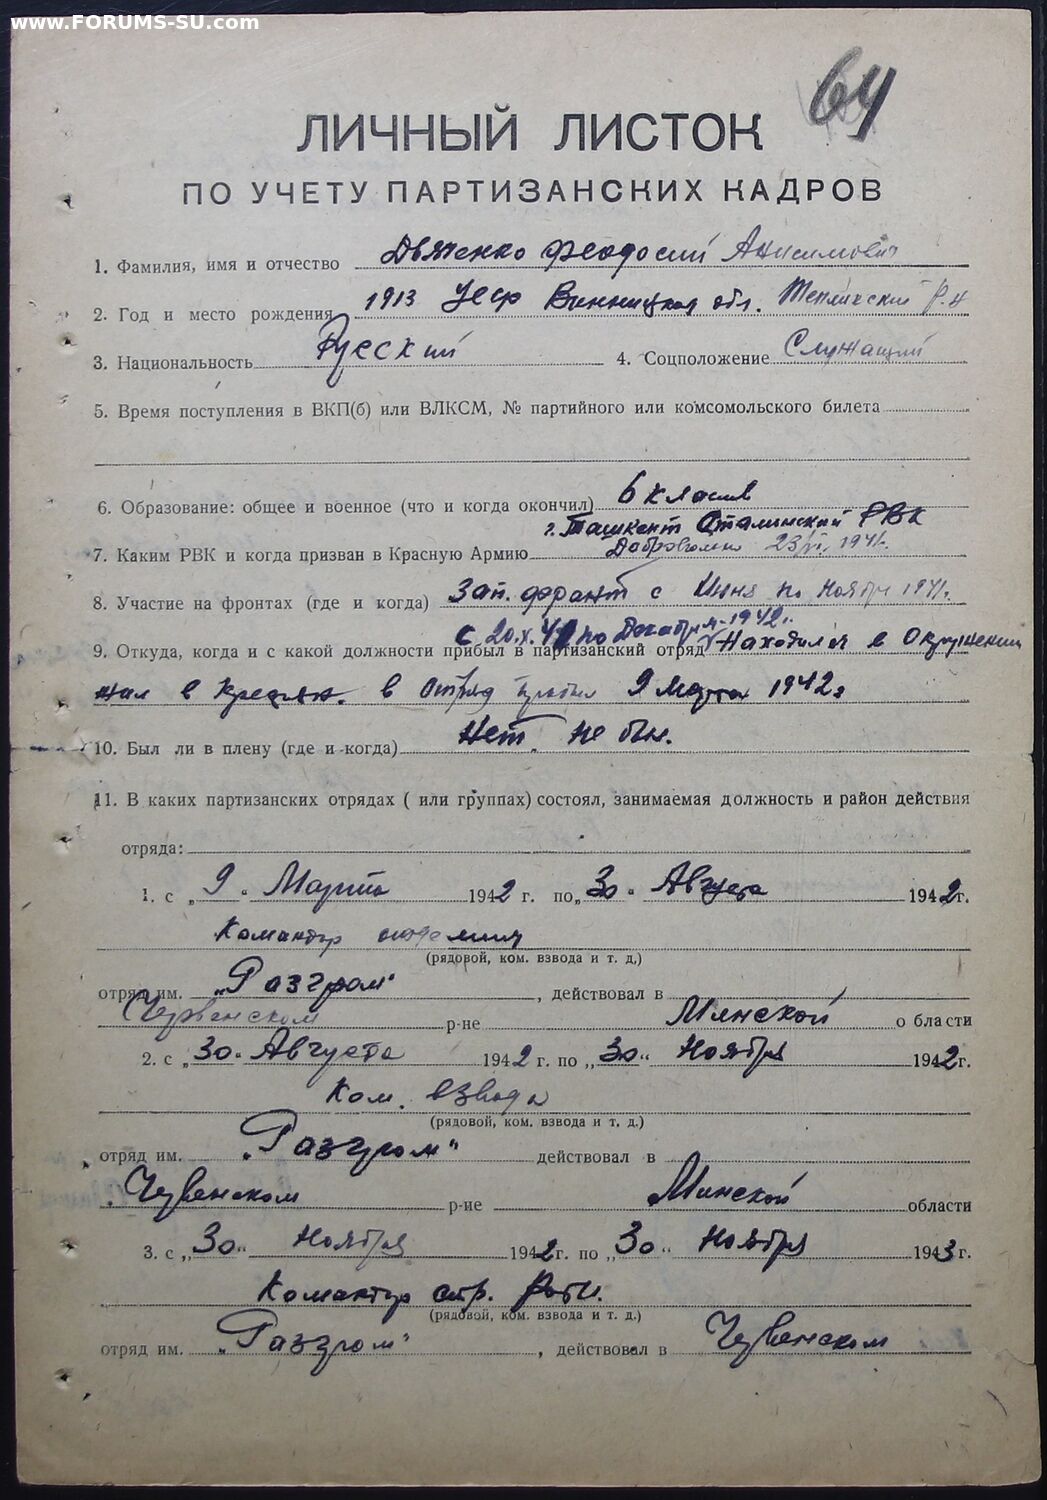 www.FORUMS-SU.com
64
ЛИЧНЫЙ ЛИСТОК
ПО УЧЕТУ ПАРТИЗАНСКИХ КАДРОВ
1. Фамилия, имя и отчество Дьяченко Феодосий Анисимович
2. Год и место рождения 1913 Усср Винницкая обл. Тепликский р-н
3. Национальность Русский 4. Соцположение Служащий
5. Время поступления в ВКП(б) или ВЛКСМ, № партийного или комсомольского билета
6. Образование: общее и военное (что и когда окончил) 6 классов
г. Ташкент Сталинский РВК
7. Каким РВК и когда призван в Красную Армию Добровольно 23/VI. 1941г.
8. Участие на фронтах (где и когда) Зап. фронт с Июня по Ноябрь 1941г.
с 20.X.41 по Декабрь 1942г.
9. Откуда, когда и с какой должности прибыл в партизанский отряд Находился в Окружении
жил в в Отряд прибыл 9 марта 1942г
10. Был ли в плену (где и когда) Нет. не был.
11. В каких партизанских отрядах ( или группах) состоял, занимаемая должность и район действия
отряда:
1. с „9" Марта 1942 г. по „30" Августа 1942г.
Командир отделения
(рядовой, ком. взвода и т. д.)
отряд им. „Разгром" , действовал в
Червенском р-не Минской области
2. с „30" Августа 1942 г. по „30" Ноября 1942г.
Ком. взвода
(рядовой, ком. взвода и т. д.)
отряд им. „Разгром" действовал в
Червенском р-не Минской области
3. с „30" Ноября 1942г. по „30" Ноября 1943г.
Командир стр. роты.
(рядовой, ком. взвода и т. д.)
отряд им. „Разгром" , действовал в Червенском